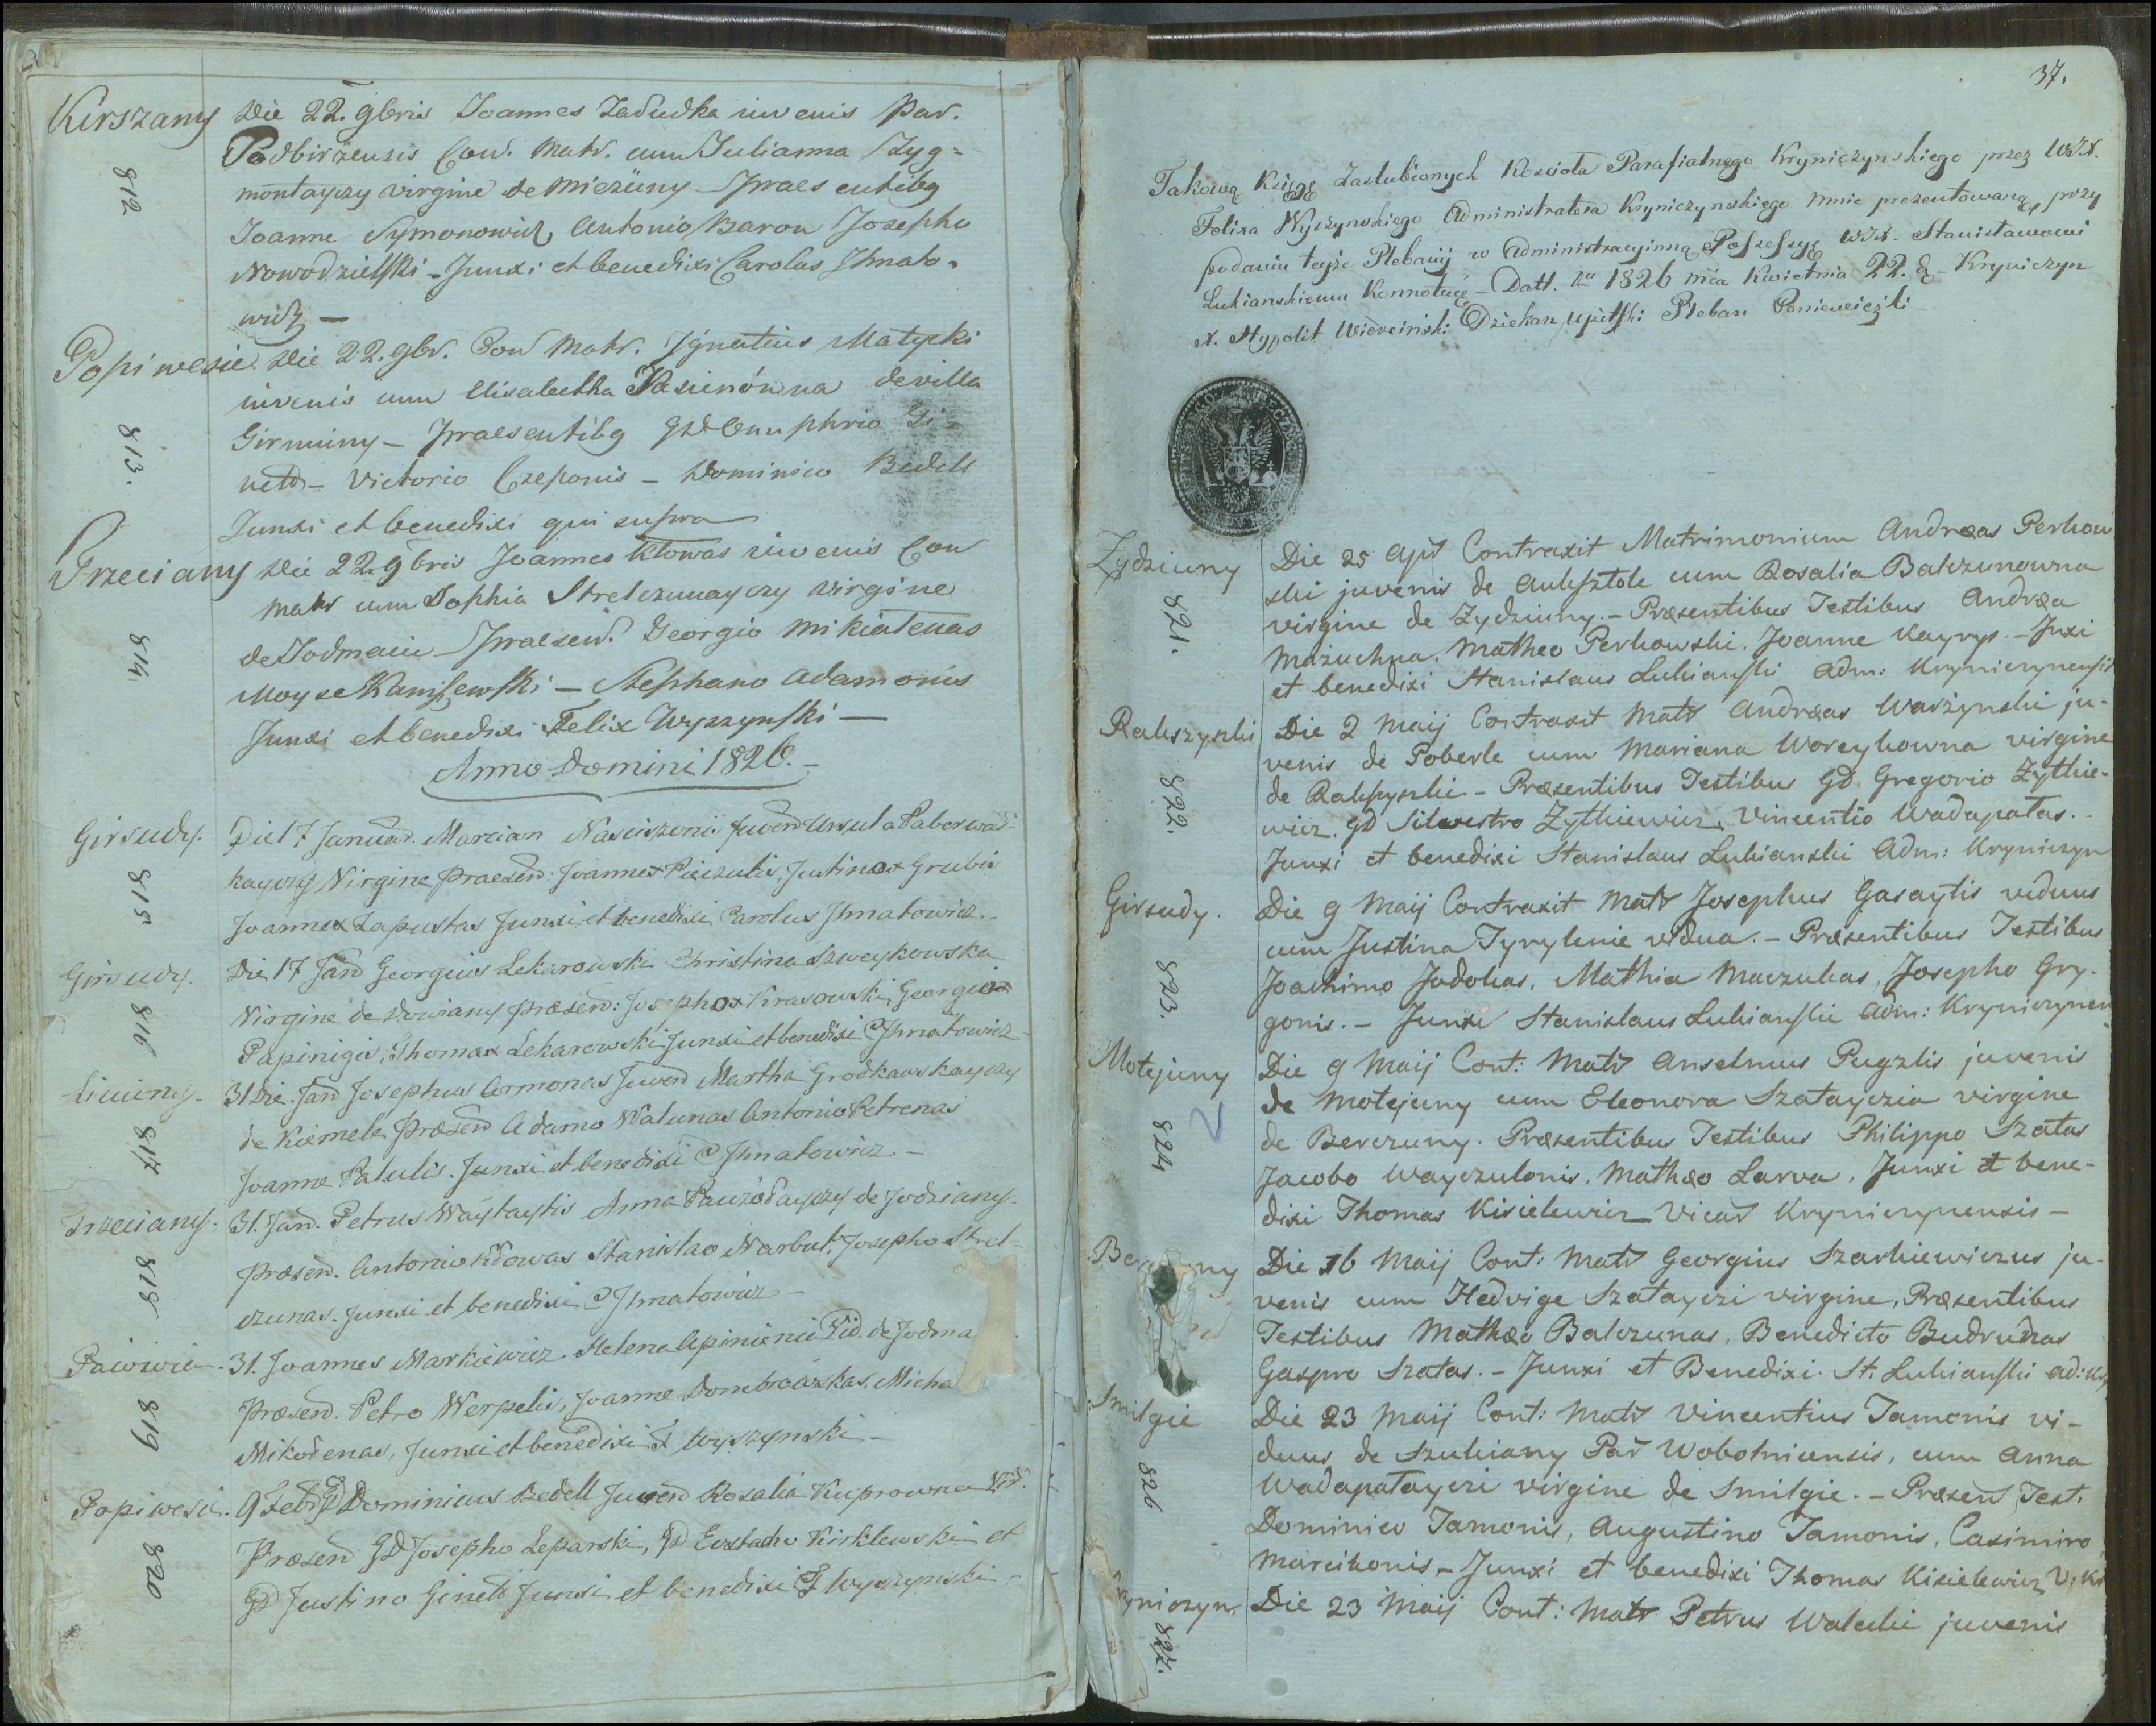 Kirszany Die 22. 9bris Joannes Zadudka iuvenis Par.
812 Podbirżensis Con. Matr. cum Julianna Zyg-
montayczy virgine de Mieżiuny Praesentibg
Joanne Symonowicz, Antonio Baron Josepho
Nowodzielski - Junxi et benedixi Carolus Ihnato-
wicz -
Popiwesie Die 22. 9br. Con Matr. Ignatius Matycki
iuvenis cum Elisabetha Jasienówna de villa
813. Girminny - Praesentibg GD Onuphrio Gi-
netd - Victorio Czeponis - Dominico Bedell
Junxi et benedixi qui supra
Trzeciany Die 22. 9bris Joannes Kłowas iuvenis Con
Matr cum Sophia Strelczunayczy virgine
814 de Jodmain Praesen. Georgio Mikiatenas
Moyse Kaniszewski - Stephano Adamonis
Junxi et benedixi Felix Wyszynski -
Anno Domini 1826. -
Girsudy. Die 17 Januar. Marcian Nasciszonis Juven Ursula Paberwad-
kayczy Virgine Praesen. Joanne Pieczulis, Justino Grubis
815 Joanne Łapustas Junxi et benedixi Carolus Ihnatowicz -
Girsudy. Die 17 Jan Georgius Lekarowski Christina Szweykowska
816 Virgine de Dowiany praesen: Josepho Krasowski, Georgio
Papinigis, Thoma Lekarowski Junxi et benedixi C Ihnatowicz -
31 Die Jan Josephus Armonas Juven Martha Grodkawskayczy
817 de Kiemele Praesen Adamo Walunas Antonio Petrenas
Joanne Patulis. Junxi et benedixi C Ihnatowicz -
Trzeciany. 31. Jan. Petrus Waytaytis Anna Pauzolayczy de Jodziany.
818 Praesen. Antonio Kłowas Stanislao Narbut, Josepho Strel-
czunas. Junxi et benedixi C Ihnatowicz -
Paiwwie - 31. Joannes Markiewicz Helena Apinienie Vid. de Jodma
819 Praesen. Petro Werpelis, Joanne Dombrowskas, Micha
Mikołenas, Junxi et benedixi F Wyszynski -
Popiwesie. 9 Febr GD Dominicus Bedell Juven Rosalia Kuprowna Vir.
820 Praesen GD Josepho Leparski, GD Eustacho Kirklewski et
GD Justino Ginett Junxi et benedixi F Wyszynski -
37.
Takową Księgę Zaslubionych Kosciola Parafialnego Kryniczynskiego przez WJX.
Felixa Wyszynskiego Administratora Kryniczynskiego mnie prezentowaną, przy
podaniu teyże Plebanij w Administracyjną Possessyę WJX. Stanisławowi
Lukianskiemu Konnotuię - Datt. 1826 mca Kwietnia 22. d. Kryniczyn
X. Hypolit Dziekan Upitski Pleban Poniewiezki
Zydziuny Die 25 Apr Contraxit Matrimonium Andreas Perkow
821. ski juvenis de Auksztole cum Rosalia Balczunowna
virgine de Zydziuny. - Præsentibus Testibus Andrea
Mażuchna, Matheo Perkowski, Joanne Kayrys. - Juxi
et benedixi Stanislaus Lukianski Adm: Kryniczynensis
Rakszynki Die 2 Maij Contraxit Matr Andreas Ważynski ju-
822. venis de Poberle cum Mariana Woreykowna virgine
de Rakszynki - Præsentibus Testibus GD Gregorio Zytkie-
wicz. GD Silvestro Zytkiewicz, Vincentio Wadapałas. -
Junxi et benedixi Stanislaus Lukianski Adm: Kryniczyn
Girsudy. Die 9 Maij Contraxit Matr Josephus Gasaytis viduus
cum Justina Tyrylenie vidua. - Præsentibus Testibus
823. Joachimo Jodokas, Mathia Maczukas, Josepho Gry-
gonis. - Junxi Stanislaus Lukianski Adm: Kryniczynen
Motejuny Die 9 Maij Cont: Matr Anselmus Pugzlis juvenis
de Motejuny cum Eleonora Szatayczia virgine
824 de Berczuny. Præsentibus Testibus Philippo Szatas
Jacobo Wayczulonis, Mathæo Larva, Junxi et bene-
dixi Thomas Kisielewicz Vicar Kryniczynensis -
Die 16 Maij Cont: Matr Georgius Szarkiewiczus ju-
venis cum Hedvige Szatayczi virgine, Præsentibus
Testibus Mathæo Balczunas, Benedicto Budrunas
Gaspro Szatas. - Junxi et Benedixi. St. Lukianski Ad: Kry
Smilgie Die 23 Maij Cont: Matr Vincentius Tamonis vi-
duus de Szukiany Par Wobolnicensis, cum Anna
826 Wadapałayczi virgine de Smilgie. - Præsen Test.
Dominico Tamonis, Augustino Tamonis, Casimiro
Marcikonis, - Junxi et benedixi Thomas Kisielewicz V. Kr
Kryniczyn. Die 23 Maij Cont: Matr Petrus Walecki juvenis
827.